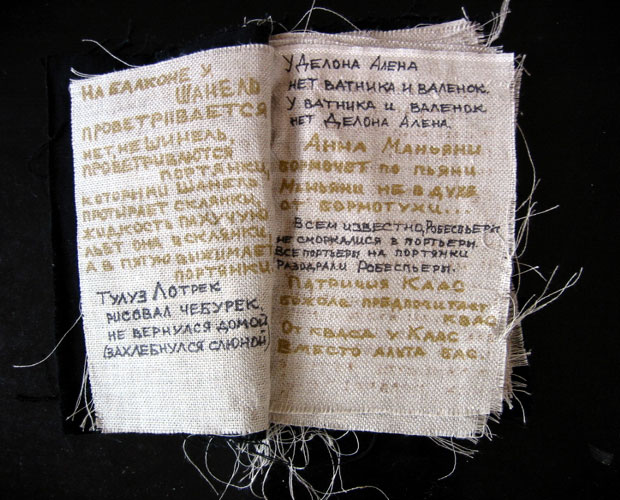 На балконе у
Шанель
проветривается
нет, не шинель,
проветриваются
портянки,
которыми Шанель
протирает склянки.
жидкость пахучую
льёт она в склянки,
а в пятую выжимает
портянки.
Тулуз Лотрек
рисовал чебурек.
не вернулся домой
(захлебнулся слюной)
У Делона Алена
нет ватника и валенок.
У ватника и валенок
нет Делона Алена.
Анна Маньяни
бормочет по пьяни
Маньяни не в духе
от бормотухи...
Всем известно, Робеспьеры
не сморкалися в портьеры.
Все портьеры на портянки
разодрали Робеспьеры.
Патриция Каас
божоле предпочитает
квас
От кваса у Каас
Вместо альта бас.